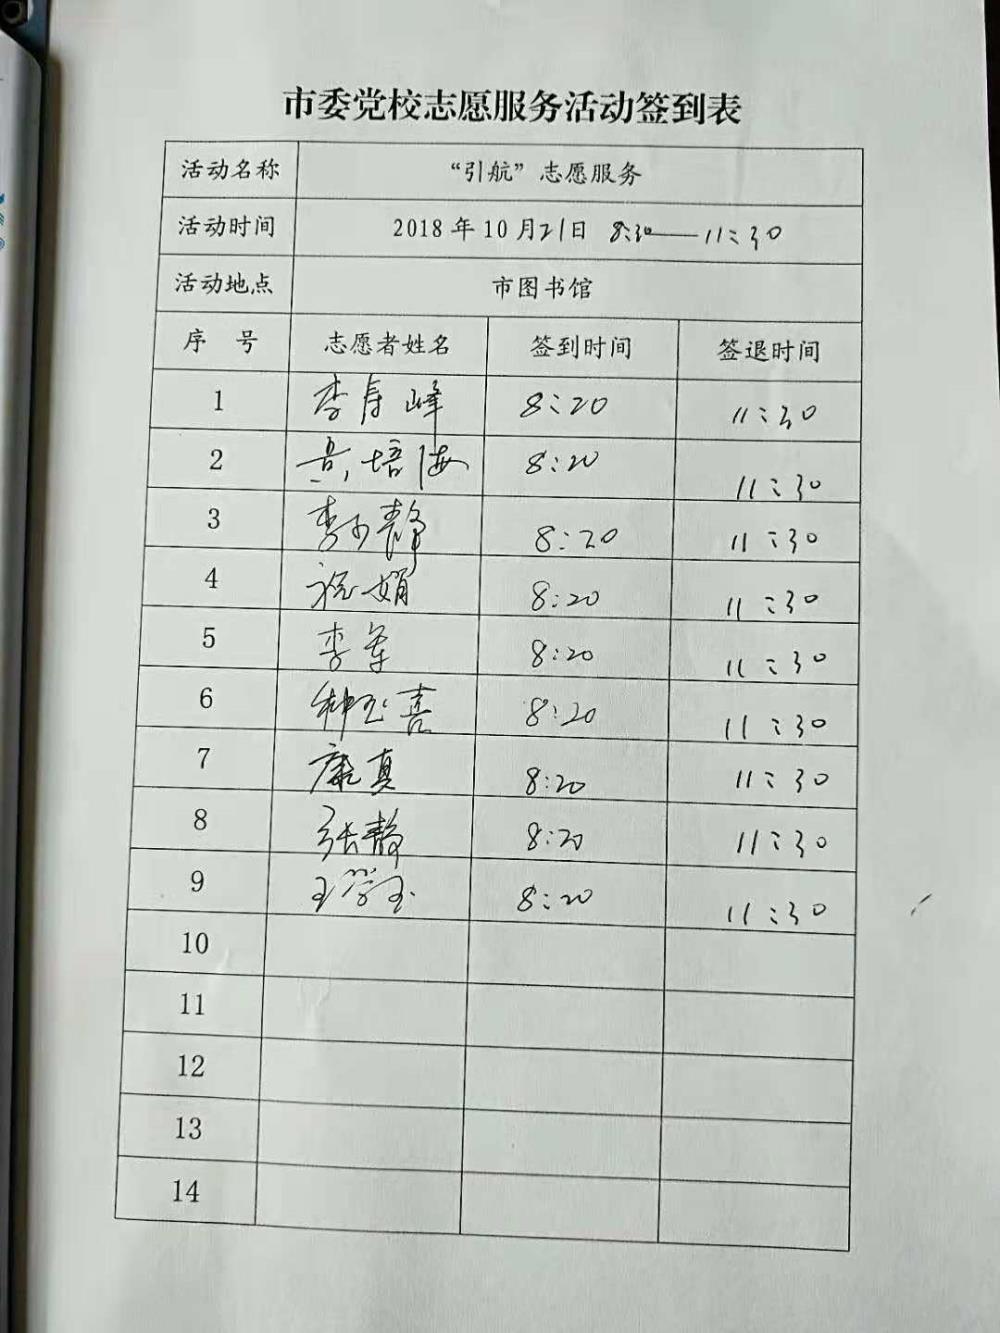 市委党校志愿服务活动签到表
活动名称 “引航”志愿服务
活动时间 2018年10月21日 8:30——11:30
活动地点 市图书馆
序 号 志愿者姓名 签到时间 签退时间
1 李寿峰 8:20 11:30
2 培海 8:20 11:30
3 李少静 8:20 11:30
4 祝娟 8:20 11:30
5 李军 8:20 11:30
6 种玉喜 8:20 11:30
7 康真 8:20 11:30
8 张静 8:20 11:30
9 王学玉 8:20 11:30
10
11
12
13
14